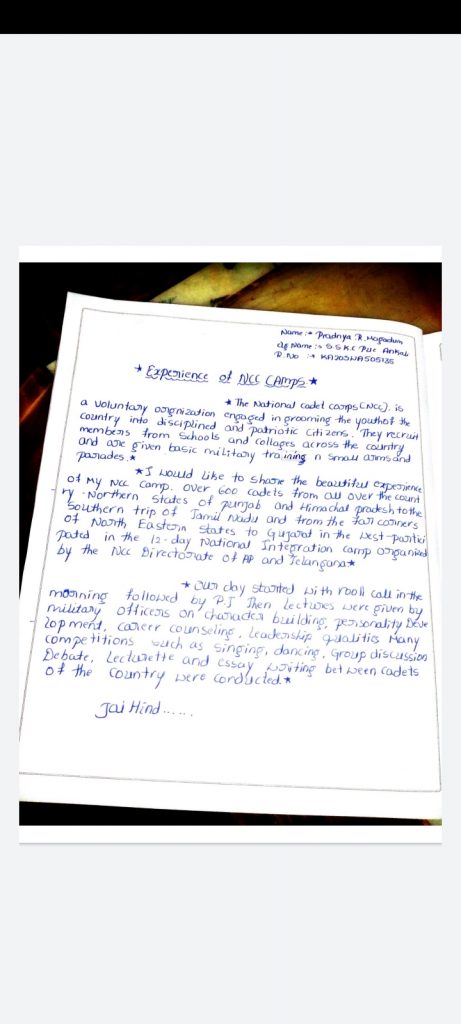 Name :- Pradnya R. Magadum
clg Name :- S.S.K.C Puc Ankal
R. No :- KA20SWA505135
* Experience of NCC CAMPS. *
* The National cadet corps (NCC). is
a voluntary orgnization engaged in grooming the youth of the
country into disciplined and patriotic citizens. They recruit
members from Schools and collages across the country
and are given basic military training n Small arms and
parades. *
* I would like to share the beautiful experience
of My NCC camp. over 600 cadets from all over the count
ry - Northern States of punjab and Himachal pradesh to the
Southern trip of Tamil Nadu and from the far corners
of North Eastern States to Gujarat in the West - partici
pated in the 12-day National Integration camp organized
by the NCC Directorate of AP and Telangana *
* Our day started with rooll call in the
morning followed by P.T Then Lectures were given by
military officers on character building, personality Deve
lopment, career counseling, Leadership qualitics Many
competitions such as singing, dancing, Group discussion
Debate, Lecturette and essay writing bet ween cadets
of the country were conducted. *
Jai Hind ......